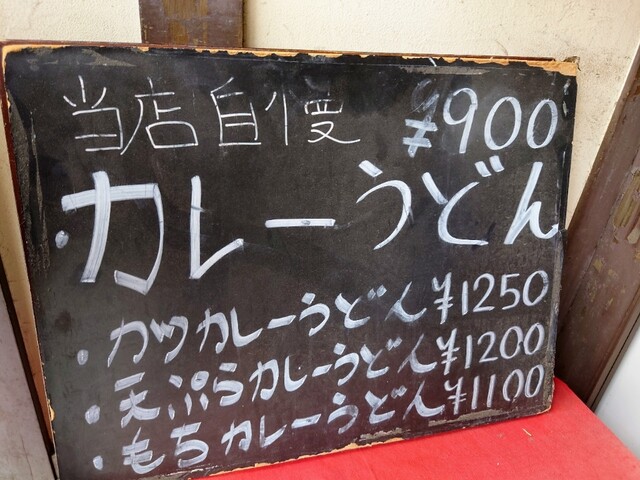 当店自慢 ¥900
・カレーうどん
・カツカレーうどん¥1250
・天ぷらカレーうどん¥1200
・もちカレーうどん¥1100